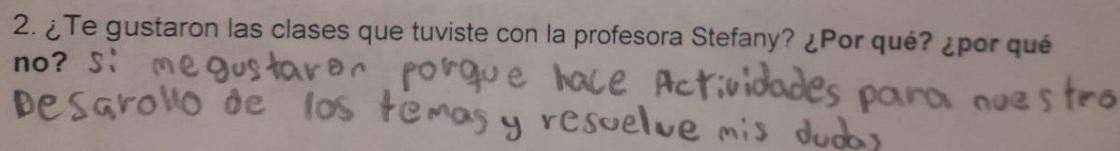 2. ¿Te gustaron las clases que tuviste con la profesora Stefany? ¿Por qué? ¿por qué
no? Si me gustaron porque hace Actividades para nuestro
Desarollo de los temas y resuelve mis dudas